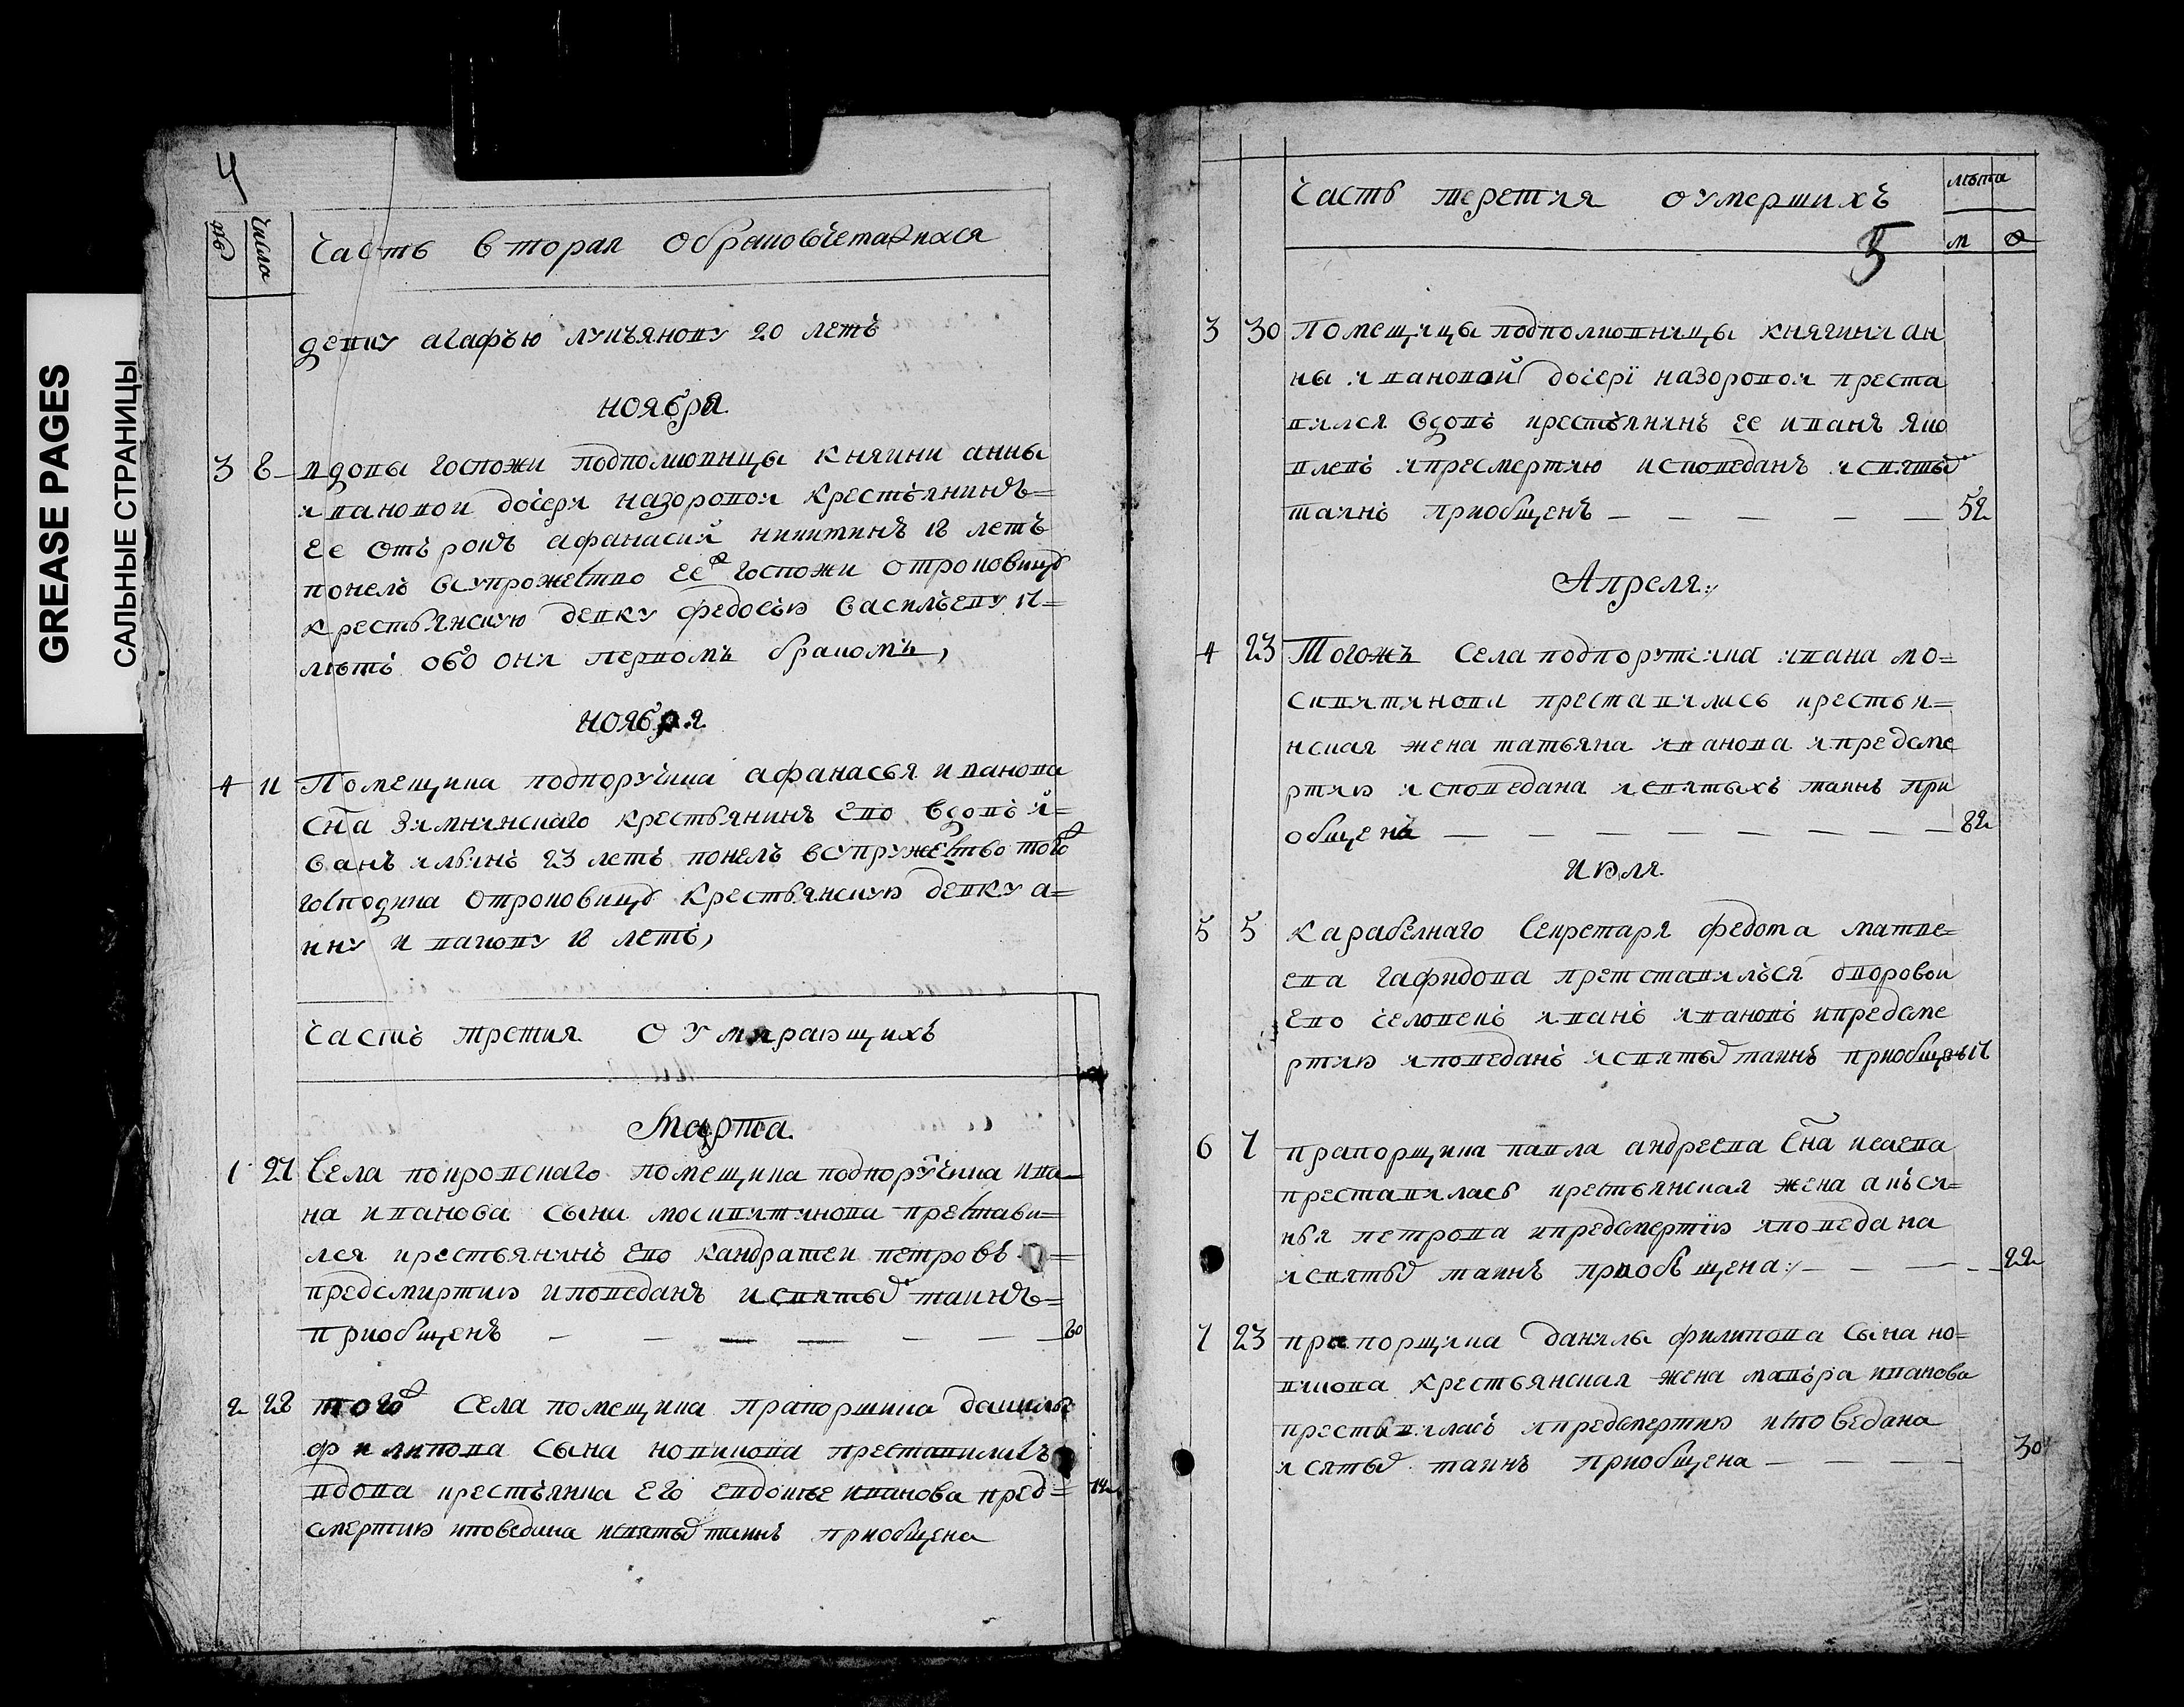 GREASE PAGES
САЛЬНЫЕ СТРАНИЦЫ
4
числа
Часть вторая о бракосочетавшихся
девку агафью лукъянову 20 летъ
ноября
3 8 вдовы госпожи подполковницы княгини анны
ивановои дочери назоровои крестьянинъ=
ее отърокъ афанасий никитинъ 18 летъ
понелъ всупрожество ее госпожи отроковицу
крестьянскую девку федосью васильеву 17=
лѣтъ обо они первомъ бракомъ,
ноября
4 11 Помещика подпоручика афанасья иванова
сна зимнинскаго крестьянинъ ево вдовъ и=
ванъ ильинъ 23 летъ понелъ всупружество тогож
господина отроковицу крестьянскую девку а=
нну иванову 18 летъ,
часть третия о умирающихъ
Марта
1 27 Села покровскаго помещика подпоручика ива=
на иванова сына москвитинова престави=
лся крестьянинъ ево кандратеи петровъ
предсмиртию иповеданъ и святых таинъ=
приобщенъ 60
2 28 тогож села помещика прапоршика данилы
филипова сына новикова преставилась
вдова крестьянка его евдокье иванова пред=
смертию иповедана исвятых таинъ приобщена
Часть теретия о умершихъ
лѣта
м ф
5
3 30 Помещицы подполковницы княгини ан
ны ивановай дочерï назоровои преста
вился вдовъ крестьянинъ ее иванъ яко
влевъ ипресмертию исповеданъ исвятых
таинъ приобщенъ 52
Апреля
4 23 Тогожъ села подпоручика ивана мо=
сквитинова преставились крестья=
нская жена татьяна иванова ипредсме
ртию исповедана исвятыхъ таинъ при
общена 82
июля
5 5 карабелнаго секретаря федота матве=
ева гафидова претставилься дворовои
ево человекъ иванъ ивановъ ипредсме
ртию иповеданъ исвятых таинъ приобщенъ 17
6 7 прапорщика павла андреева сна исаева
преставилась крестьянская жена акъси=
нья петрова ипредсмертïю иповедана
исвятых таинъ приобъщена 22
7 23 прапорщика данилы филипова сына но=
викова крестьянская жена мавъра иванова
преставилась ипредсмертию исповедана
исятых таинъ приобщена 30